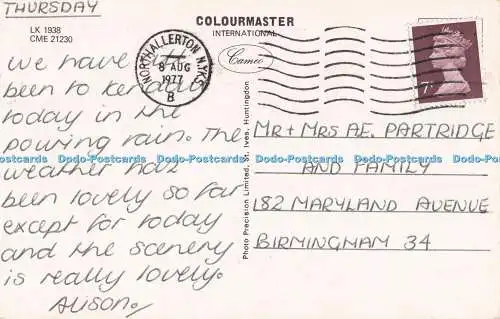 THURSDAY
LK 1938
CME 21230
COLOURMASTER
INTERNATIONAL
Cameo
NORTHALLERTON N. YKS
8 AUG
1977
B
7
We have
been to Kendal
today in the
pouring rain. The
weather has
been lovely so far
except for today
and the scenery
is really lovely.
Alison.
Photo Precision Limited, St. Ives, Huntingdon
MR + MRS A.E. PARTRIDGE
AND FAMILY
182 MARYLAND AVENUE
BIRMINGHAM 34
Dodo-Postcards Dodo-Postcards Dodo-Postcards Dodo-Postcards Dodo-Postcards Dodo-Postcards